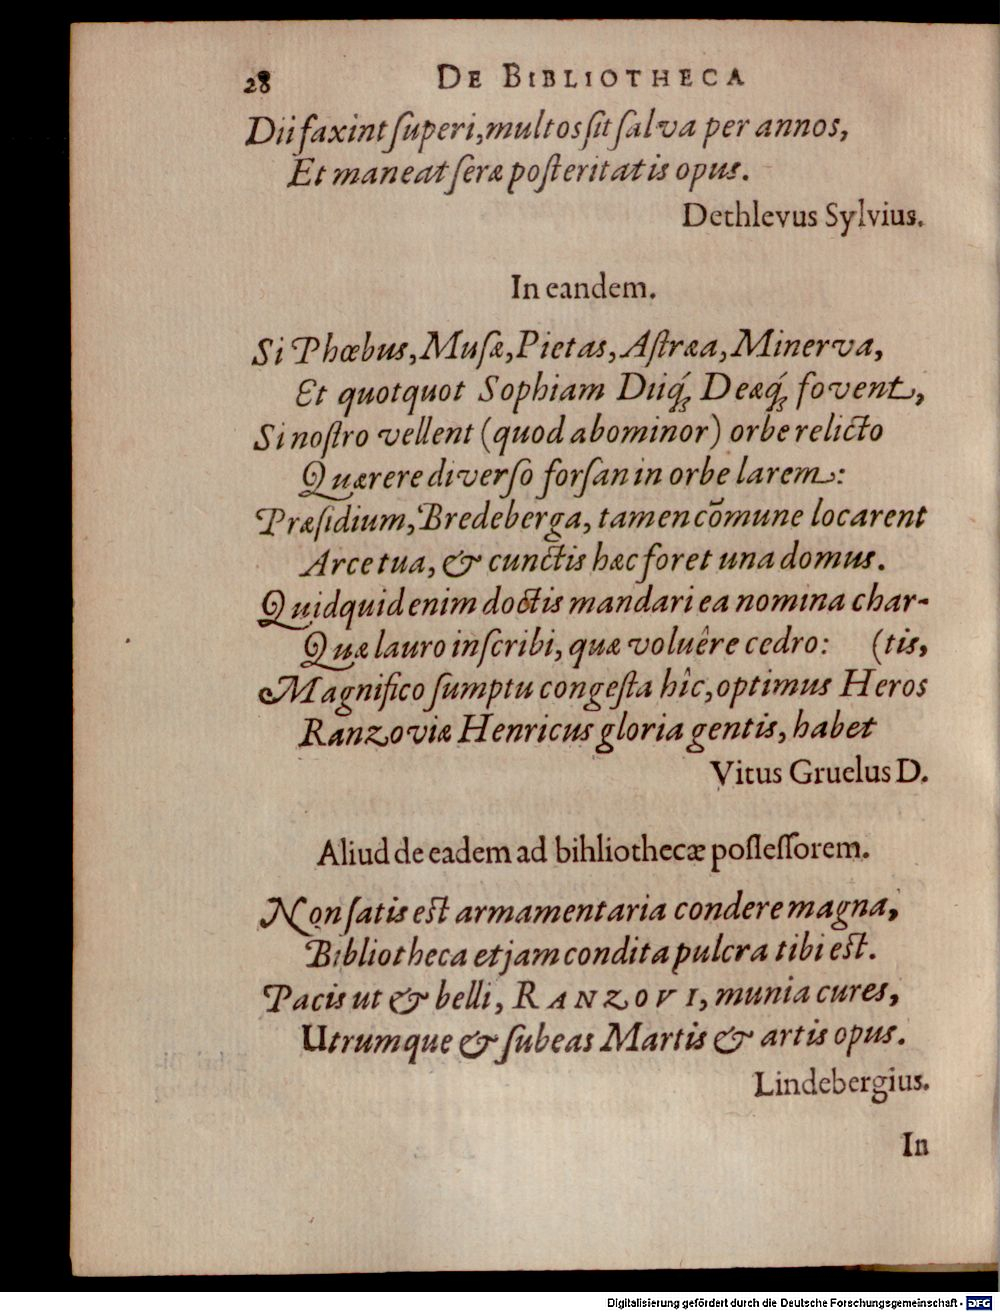 28 DE BIBLIOTHECA
Dii faxint ſuperi, multos ſit ſalva per annos,
Et maneat ſeræ poſteritatis opus.
Dethlevus Sylvius.
In eandem.
Si Phœbus, Muſæ, Pietas, Aſtræa, Minerva,
Et quotquot Sophiam Diiq́ꝫ Deæq́ꝫ fovent,
Si noſtro vellent (quod abominor) orbe relicto
Quærere diverſo forſan in orbe larem:
Præſidium, Bredeberga, tamen cōmune locarent
Arce tua, & cunctis hæc foret una domus.
Quidquid enim doctis mandari ea nomina char-
Quæ lauro inſcribi, quæ voluêre cedro: (tis,
Magnifico ſumptu congeſta hîc, optimus Heros
Ranzoviæ Henricus gloria gentis, habet
Vitus Gruelus D.
Aliud de eadem ad bihliothecæ poſſeſſorem.
Non ſatis eſt armamentaria condere magna,
Bibliotheca etjam condita pulcra tibi eſt.
Pacis ut & belli, RANZOVI, munia cures,
Utrumque & ſubeas Martis & artis opus.
Lindebergius.
In
Digitalisierung gefördert durch die Deutsche Forschungsgemeinschaft - DFG